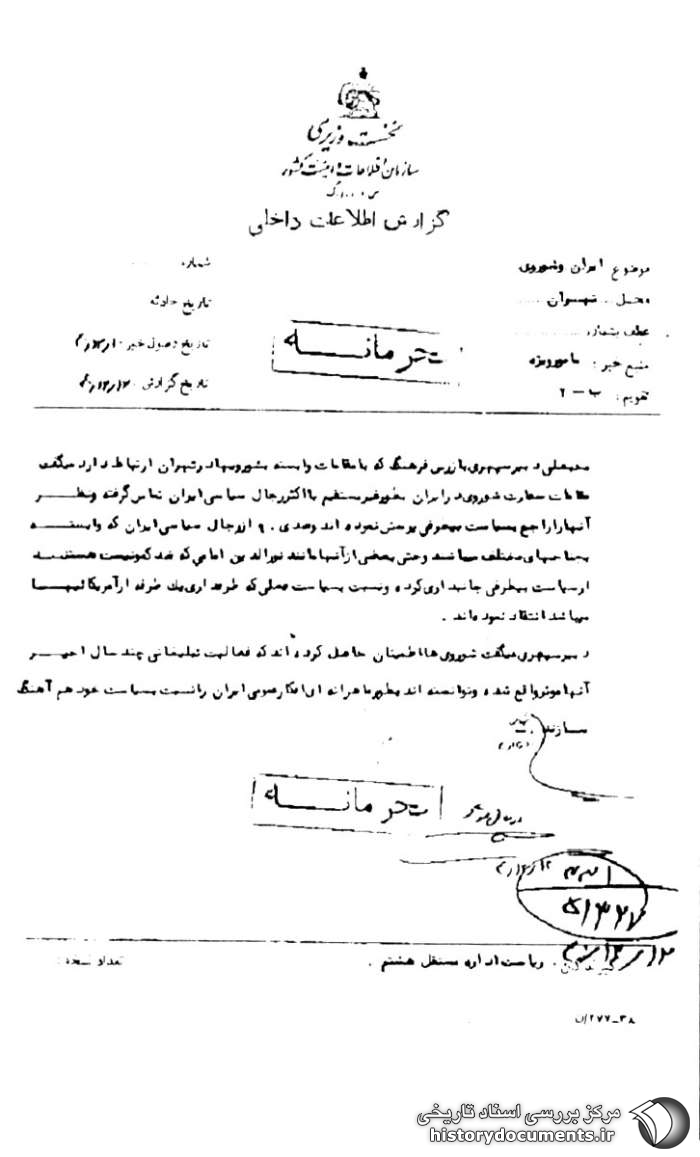 نخست وزیری
سازمان اطلاعات و امنیت کشور
س . ا . و . ا . ک
گزارش اطلاعات داخلی
موضوع ایران وشوروی
محل . تهران
عطف بشماره
منبع خبر : مامورویژه
تقویم : ب - ۲
شماره
تاریخ حادثه
تاریخ وصول خبر
تاریخ گزارش
محرمانه
محمدعلی دبیرسپهری بازرس فرهنگ که بامقامات وابسته بشورویهادرتهران ارتباط دارد میگفت
مقامات سفارت شوروی در ایران بطورغیرمستقیم بااکثررجال سیاسی ایران تماس گرفته ونظر
آنهارا راجع بسیاست بیطرفی پرسش نموده اند وصدی ۹۰ ازرجال سیاسی ایران که وابسته
بجناحهای مختلف میباشند وحتی بعضی ازآنهامانند نورالدین امامی که ضد کمونیست هستند
ازسیاست بیطرفی جانبداری کرده ونسبت بسیاست فعلی که طرفداری یك طرفه ازآمریکائیها
میباشد انتقاد نموده اند .
دبیرسپهری میگفت شوروی هااطمینان حاصل کرده اند که فعالیت تبلیغاتی چند سال اخیر
آنها موثرواقع شده وتوانسته اند بطورماهرانه ای افکارعمومی ایران رانسبت بسیاست خود هم آهنگ
سازند .
محرمانه
۵۱۳۲۷
گیرندگان . ریاست اداره مستقل هشتم .
تعداد نسخه :
۲۷۷-۳۸
مرکز بررسی اسناد تاریخی
historydocuments.ir